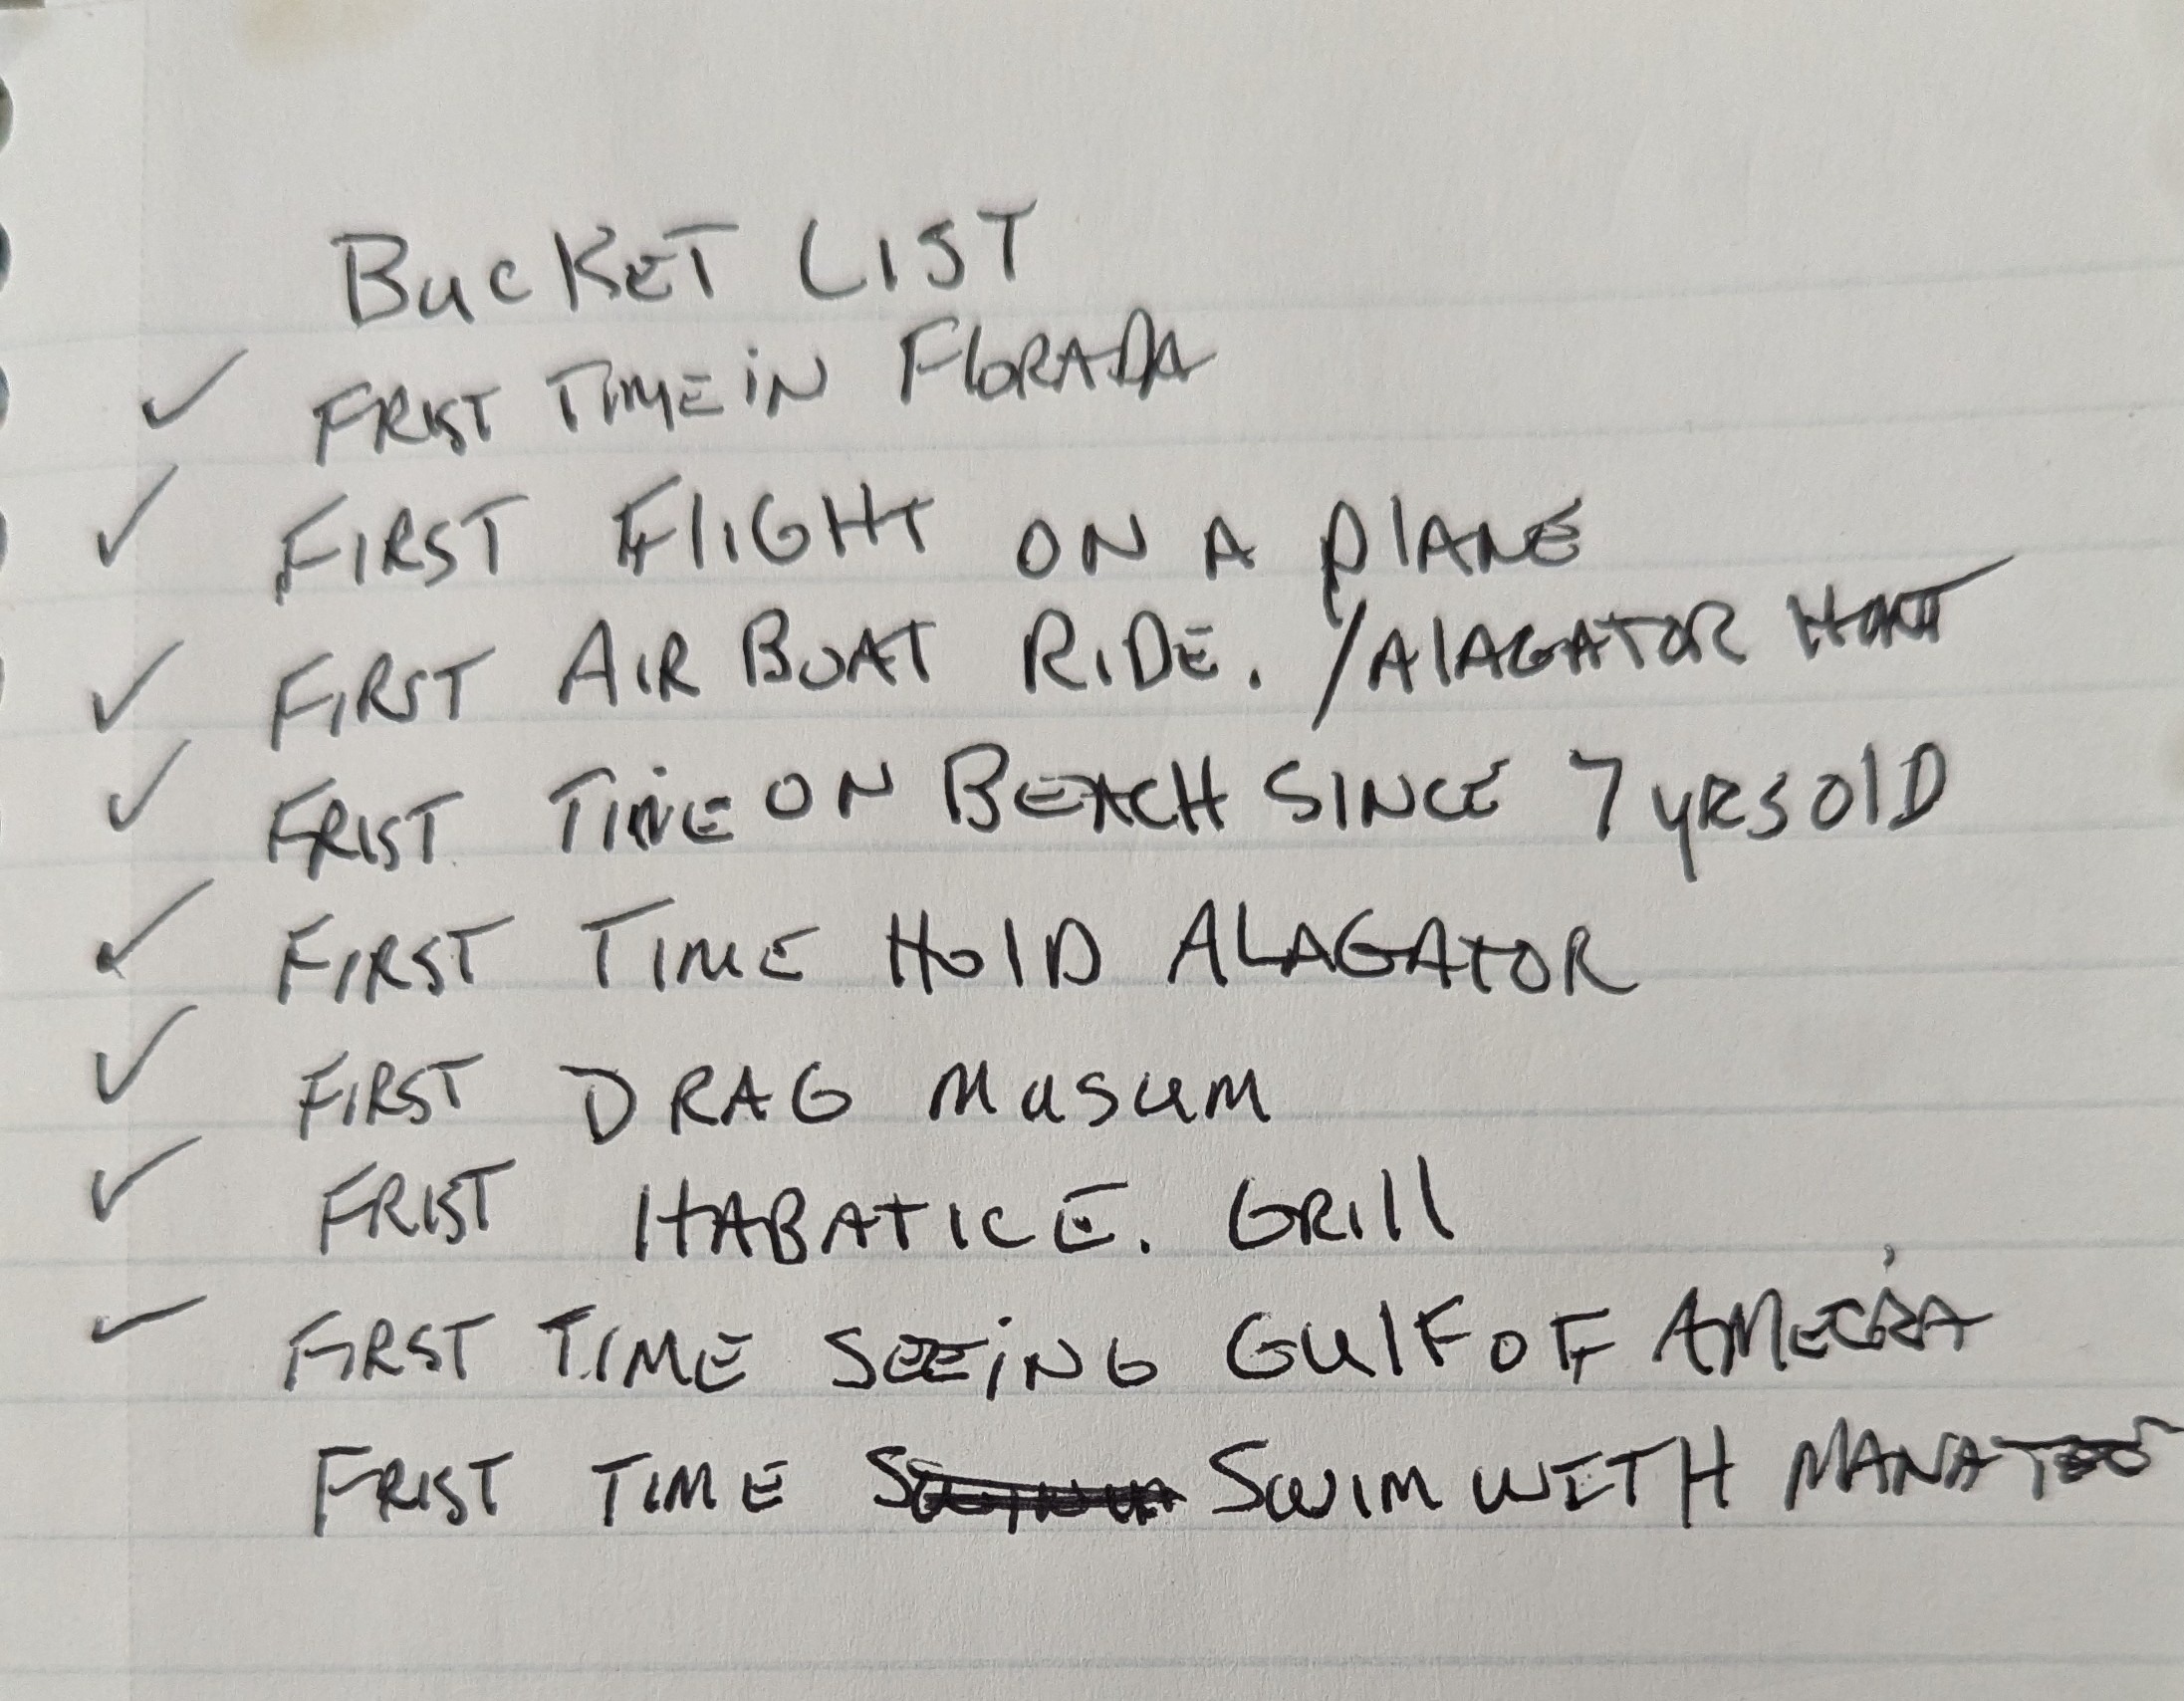 BUCKET LIST
✓ FRIST TIME IN FLORADA
✓ FIRST FLIGHT ON A PLANE
✓ FIRST AIR BOAT RIDE. /ALAGATOR
✓ FRIST TIME ON BEACH SINCE 7 YRS OLD
✓ FIRST TIME HOLD ALAGATOR
✓ FIRST DRAG MUSUM
✓ FRIST HABATICE. GRILL
✓ FIRST TIME SEEING GULF OF
FRIST TIME SWIM WITH